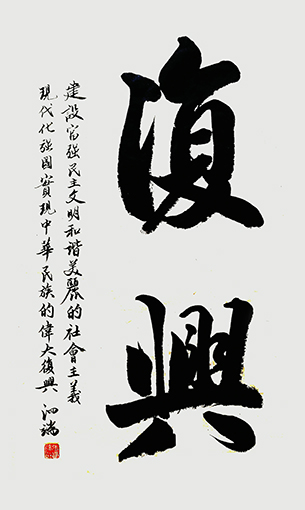 復興
建設富强民主文明和諧美麗的社會主義
現代化强國實現中華民族的偉大復興
泗瑞